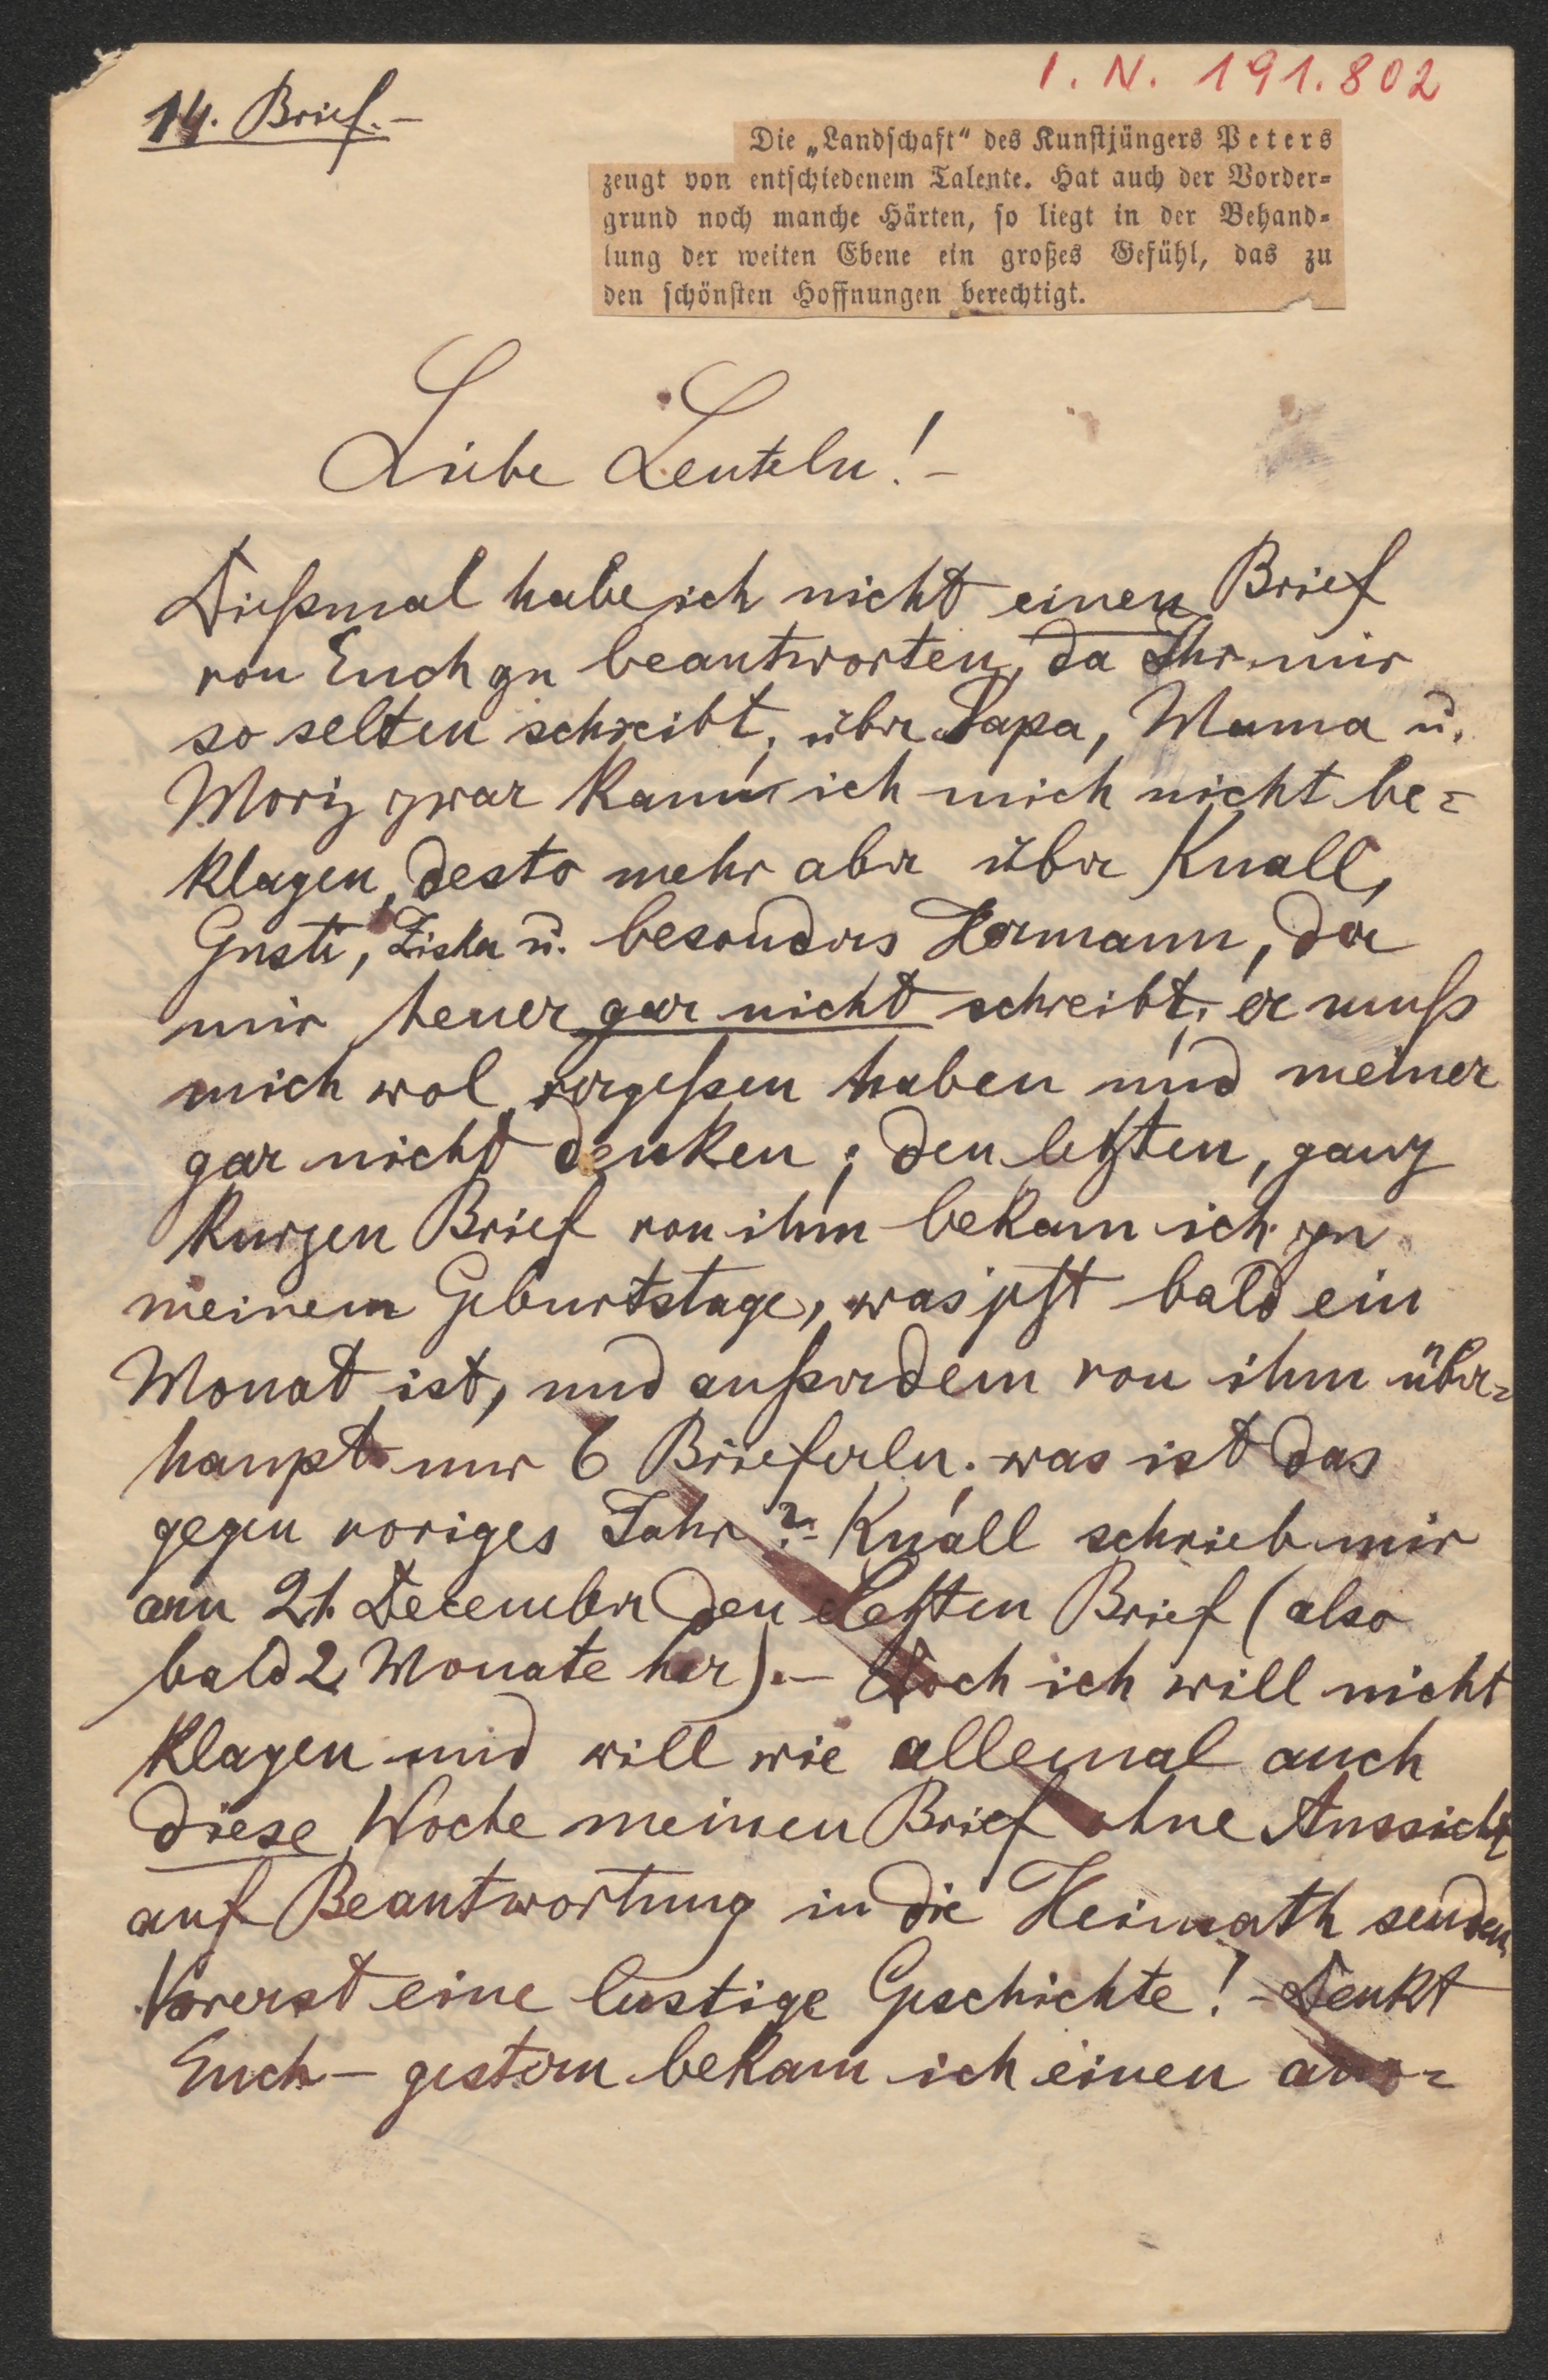 I. N. 191.802
14. Brief. –
Die „Landschaft“ des Kunstjüngers Peters
zeugt von entschiedenem Talente. Hat auch der Vorder=
grund noch manche Härten, so liegt in der Behand=
lung der weiten Ebene ein großes Gefühl, das zu
den schönsten Hoffnungen berechtigt.
Liebe Leuteln! –
Dießmal habe ich nicht einen Brief
von Euch zu beantworten, da Ihr mir
so selten schreibt, über Papa, Mama u.
Moriz zwar kann ich mich nicht be=
klagen, desto mehr aber über Knall,
Gusti, Ziska u. besonders Hermann, der
mir heuer gar nicht schreibt, er muß
mich wol vergeßen haben und meiner
gar nicht denken; den letzten, ganz
kurzen Brief von ihm bekam ich zu
meinem Geburtstage, was jetzt bald ein
Monat ist, und außerdem von ihm über=
haupt nur 6 Brieferln. was ist das
gegen voriges Jahr? – Knall schrieb mir
am 21. December den letzten Brief (also
bald 2 Monate her). – Doch ich will nicht
klagen und will wie allemal auch
diese Woche meinen Brief ohne Aussicht
auf Beantwortung in die Heimath senden.
Vorerst eine lustige Geschichte! – Denkt
Euch – gestern bekam ich einen ano=